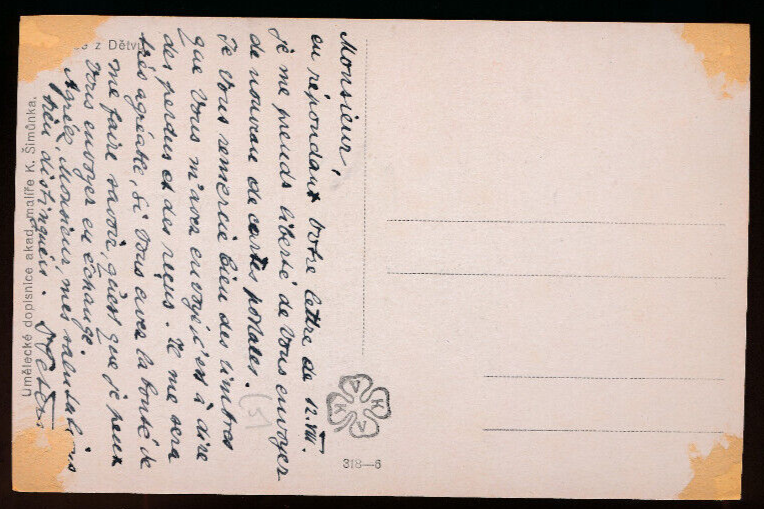 Monsieur,
en répondant Votre lettre de 12.VIII.
je me prends liberté de Vous envoyer
de nouveau de cartes postales.
Je Vous remercie bien des timbres
que Vous m'avez envoyé, c'est à dire
des perdus et des reçus. Il me sera
très agréable, si Vous avez la bonté de
me faire savoir, qu'est que je peux
Vous envoyer en échange.
Agréez, Monsieur, mes salutations
très distinguées.
z Dětv
Umělecké dopisnice akad. malíře K. Šimůnka.
(51
V K V K
318—6